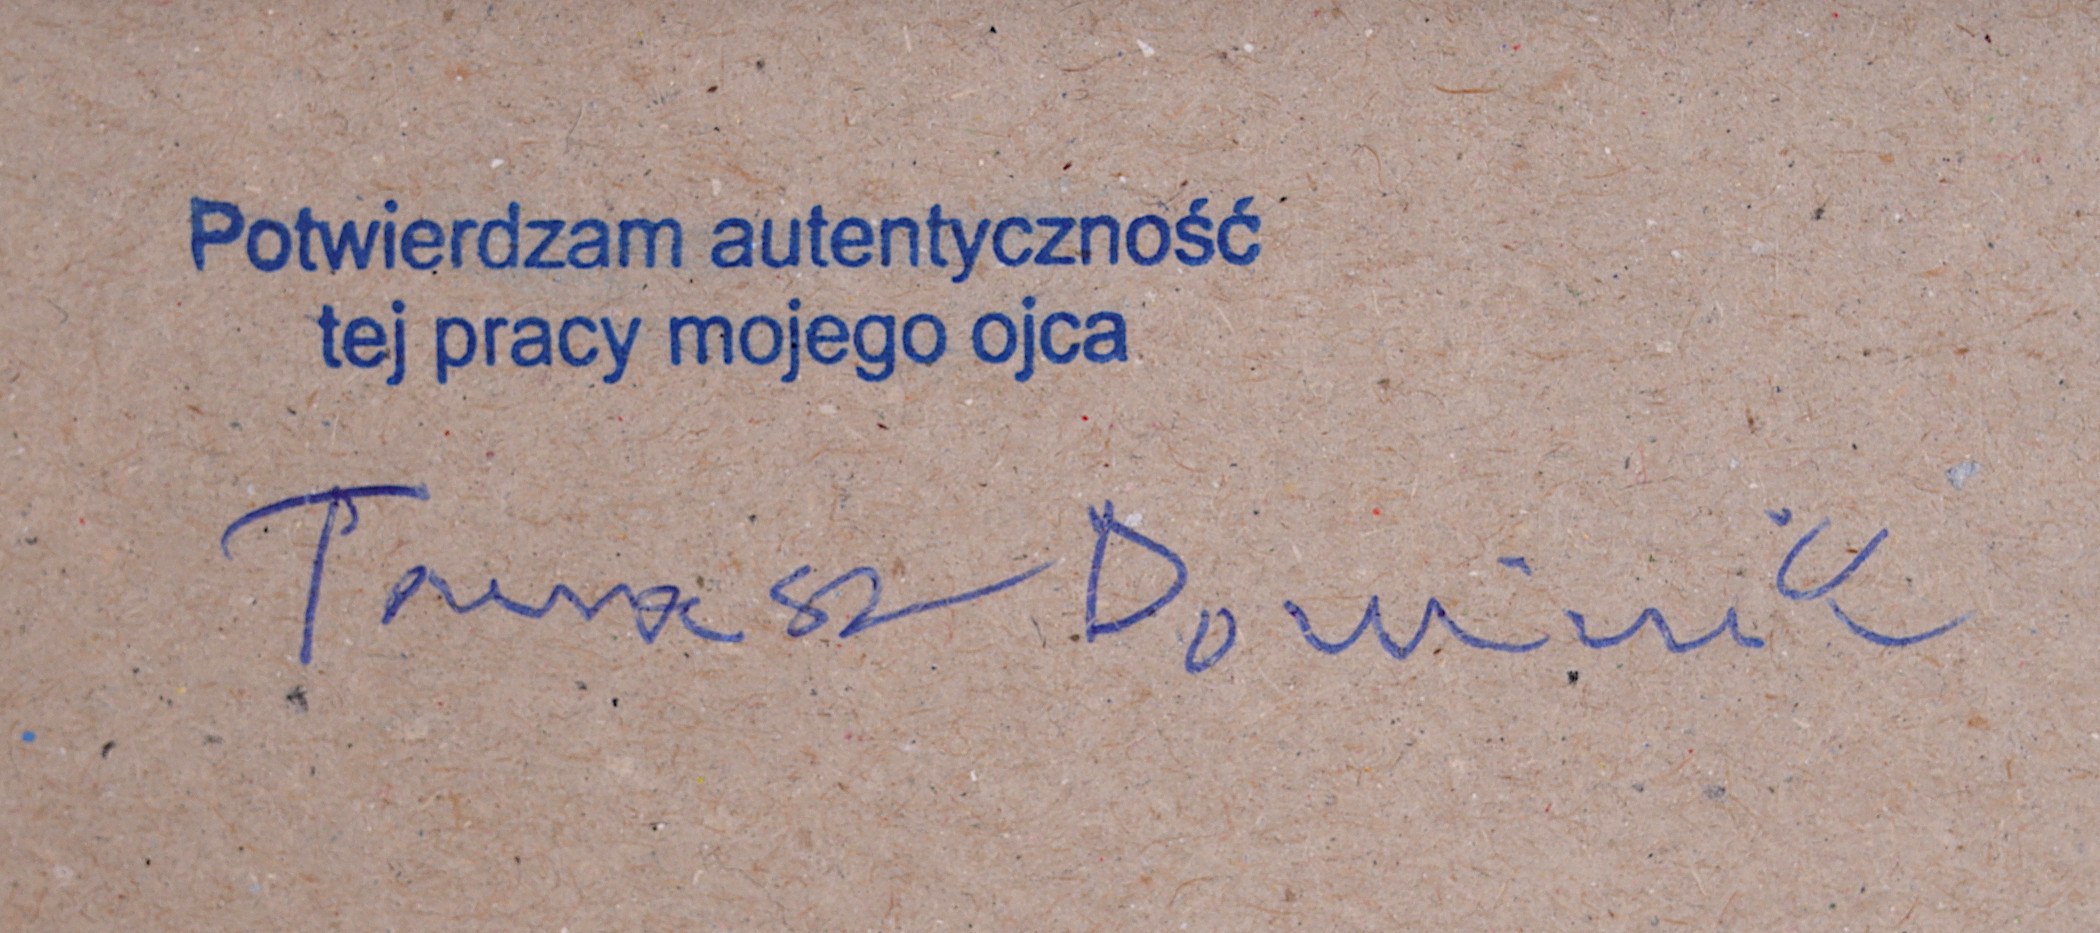 Potwierdzam autentyczność
tej pracy mojego ojca
Tomasz Dominik